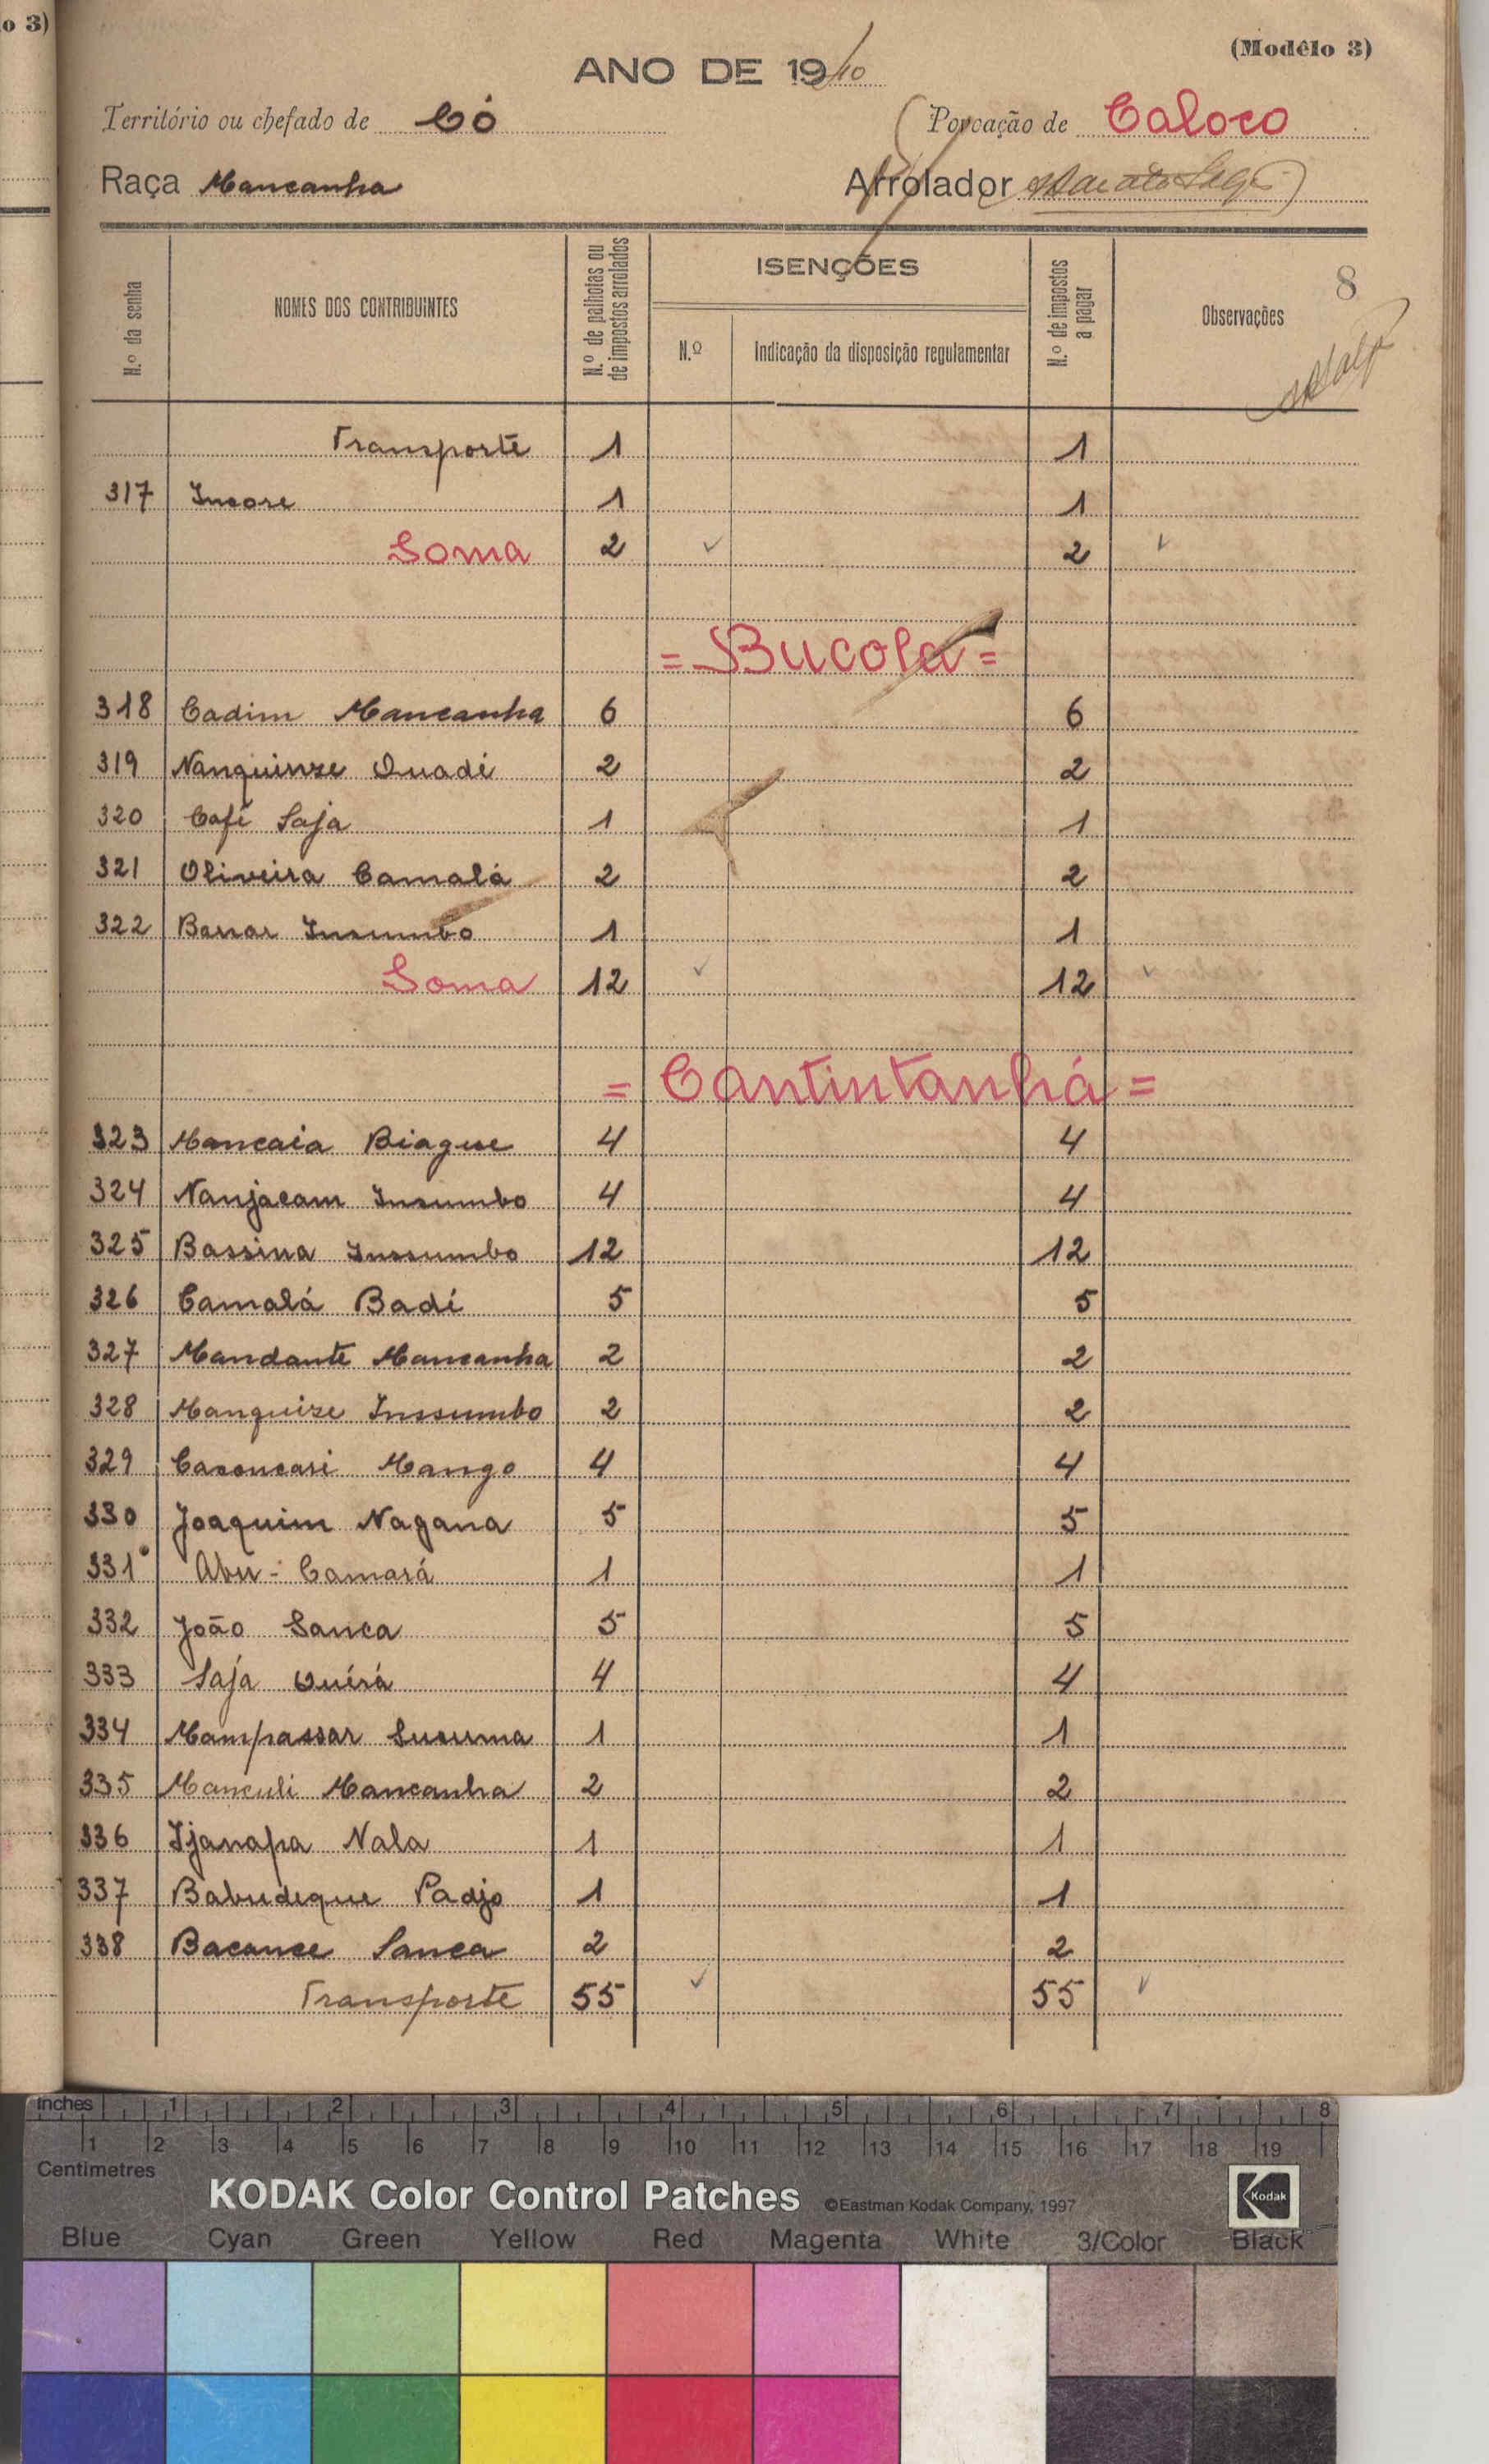 o 3)
(Modêlo 3)
ANO DE 1940
Território ou chefado de Có
Povoação de Caloco
Raça Mancanha
Arrolador
N.º da senha
NOMES DOS CONTRIBUINTES
N.º de palhotas ou de impostos arrolados
ISENÇÕES
N.º
Indicação da disposição regulamentar
N.º de impostos a pagar
Observações
8
Transporte 1 1
317 Incore 1 1
Soma 2 2
= Bucola =
318 Cadim Mancanha 6 6
319 Nanquinze Quadé 2 2
320 Café Saja 1 1
321 Oliveira Camalá 2 2
322 Barrar Insumbo 1 1
Soma 12 12
= Cantintanhá =
323 Mancaia Biague 4 4
324 Nanjacam Insumbo 4 4
325 Bassina Inssumbo 12 12
326 Camalá Badi 5 5
327 Mandante Mancanha 2 2
328 Manquize Inssumbo 2 2
329 Mango 4 4
330 Joaquim Nagana 5 5
331 Abu - Camará 1 1
332 João Sanca 5 5
333 Saja 4 4
334 Mampassar 1 1
335 Manculi Mancanha 2 2
336 Ijanapa Nala 1 1
337 Babudeque Padjo 1 1
338 Bacance Sanca 2 2
Transporte 55 55
Inches 1 2 3 4 5 6 7 8
1 2 3 4 5 6 7 8 9 10 11 12 13 14 15 16 17 18 19
Centimetres
KODAK Color Control Patches ©Eastman Kodak Company, 1997 Kodak
Blue Cyan Green Yellow Red Magenta White 3/Color Black